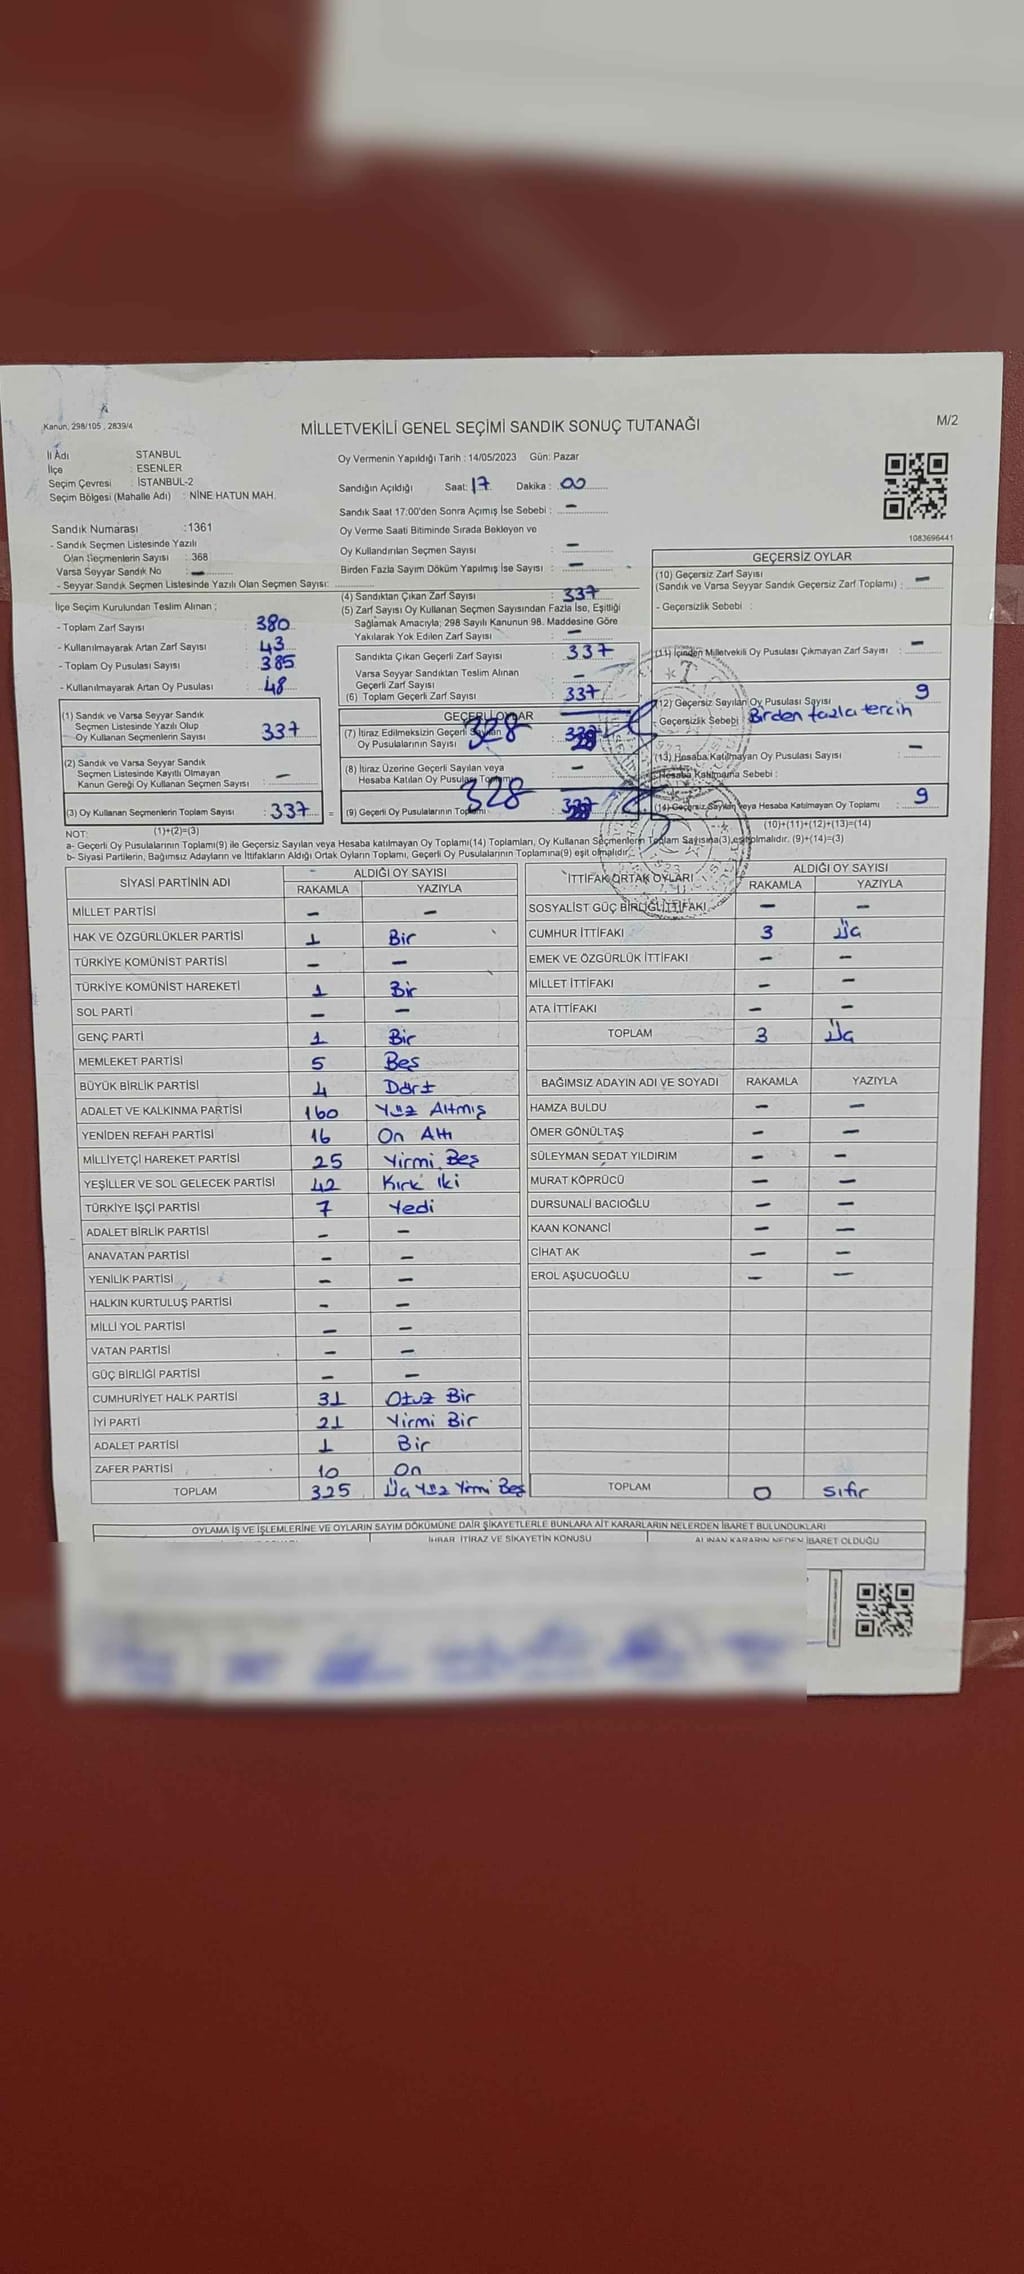 Kanun, 298/105 , 2839/4
MİLLETVEKİLİ GENEL SEÇİMİ SANDIK SONUÇ TUTANAĞI
M/2
İl Adı STANBUL
İlçe : ESENLER
Seçim Çevresi : İSTANBUL-2
Seçim Bölgesi (Mahalle Adı) : NİNE HATUN MAH.
Sandık Numarası :1361
- Sandık Seçmen Listesinde Yazılı
Olan Seçmenlerin Sayısı : 368
Varsa Seyyar Sandık No —
- Seyyar Sandık Seçmen Listesinde Yazılı Olan Seçmen Sayısı:
Oy Vermenin Yapıldığı Tarih : 14/05/2023 Gün: Pazar
Sandığın Açıldığı Saat: 17 Dakika : 00
Sandık Saat 17:00'den Sonra Açımış İse Sebebi : —
Oy Verme Saati Bitiminde Sırada Bekleyen ve
Oy Kullandırılan Seçmen Sayısı : —
Birden Fazla Sayım Döküm Yapılmış İse Sayısı : —
1083696441
İlçe Seçim Kurulundan Teslim Alınan ;
- Toplam Zarf Sayısı : 380
- Kullanılmayarak Artan Zarf Sayısı : 43
- Toplam Oy Pusulası Sayısı : 385
- Kullanılmayarak Artan Oy Pusulası : 48
(1) Sandık ve Varsa Seyyar Sandık
Seçmen Listesinde Yazılı Olup
Oy Kullanan Seçmenlerin Sayısı : 337
(2) Sandık ve Varsa Seyyar Sandık
Seçmen Listesinde Kayıtlı Olmayan
Kanun Gereği Oy Kullanan Seçmen Sayısı : —
(3) Oy Kullanan Seçmenlerin Toplam Sayısı : 337 =
(1)+(2)=(3)
(4) Sandıktan Çıkan Zarf Sayısı : 337
(5) Zarf Sayısı Oy Kullanan Seçmen Sayısından Fazla İse, Eşitliği
Sağlamak Amacıyla; 298 Sayılı Kanunun 98. Maddesine Göre
Yakılarak Yok Edilen Zarf Sayısı : —
Sandıkta Çıkan Geçerli Zarf Sayısı : 337
Varsa Seyyar Sandıktan Teslim Alınan
Geçerli Zarf Sayısı : —
(6) Toplam Geçerli Zarf Sayısı : 337
GEÇERLİ OYLAR
(7) İtiraz Edilmeksizin Geçerli Sayılan 328
Oy Pusulalarının Sayısı :
(8) İtiraz Üzerine Geçerli Sayılan veya
Hesaba Katılan Oy Pusulası Toplamı : —
(9) Geçerli Oy Pusulalarının Toplamı : 328
GEÇERSİZ OYLAR
(10) Geçersiz Zarf Sayısı
(Sandık ve Varsa Seyyar Sandık Geçersiz Zarf Toplamı) : —
- Geçersizlik Sebebi :
(11) İçinden Milletvekili Oy Pusulası Çıkmayan Zarf Sayısı : —
(12) Geçersiz Sayılan Oy Pusulası Sayısı : 9
Geçersizlik Sebebi : Birden fazla tercih
(13) Hesaba Katılmayan Oy Pusulası Sayısı : —
Hesaba Katılmama Sebebi :
(14) Geçersiz Sayılan veya Hesaba Katılmayan Oy Toplamı : 9
(10)+(11)+(12)+(13)=(14)
NOT:
a- Geçerli Oy Pusulalarının Toplamı(9) ile Geçersiz Sayılan veya Hesaba katılmayan Oy Toplamı(14) Toplamları, Oy Kullanan Seçmenlerin Toplam Sayısına(3),eşit olmalıdır. (9)+(14)=(3)
b- Siyasi Partilerin, Bağımsız Adayların ve İttifakların Aldığı Ortak Oyların Toplamı, Geçerli Oy Pusulalarının Toplamına(9) eşit olmalıdır.
SİYASİ PARTİNİN ADI ALDIĞI OY SAYISI
RAKAMLA YAZIYLA
MİLLET PARTİSİ — —
HAK VE ÖZGÜRLÜKLER PARTİSİ 1 Bir
TÜRKİYE KOMÜNİST PARTİSİ — —
TÜRKİYE KOMÜNİST HAREKETİ 1 Bir
SOL PARTİ — —
GENÇ PARTİ 1 Bir
MEMLEKET PARTİSİ 5 Beş
BÜYÜK BİRLİK PARTİSİ 4 Dört
ADALET VE KALKINMA PARTİSİ 160 Yüz Altmış
YENİDEN REFAH PARTİSİ 16 On Altı
MİLLİYETÇİ HAREKET PARTİSİ 25 Yirmi Beş
YEŞİLLER VE SOL GELECEK PARTİSİ 42 Kırk İki
TÜRKİYE İŞÇİ PARTİSİ 7 Yedi
ADALET BİRLİK PARTİSİ — —
ANAVATAN PARTİSİ — —
YENİLİK PARTİSİ — —
HALKIN KURTULUŞ PARTİSİ — —
MİLLİ YOL PARTİSİ — —
VATAN PARTİSİ — —
GÜÇ BİRLİĞİ PARTİSİ — —
CUMHURİYET HALK PARTİSİ 31 Otuz Bir
İYİ PARTİ 21 Yirmi Bir
ADALET PARTİSİ 1 Bir
ZAFER PARTİSİ 10 On
TOPLAM 325 Üç Yüz Yirmi Beş
İTTİFAK ORTAK OYLARI ALDIĞI OY SAYISI
RAKAMLA YAZIYLA
SOSYALİST GÜÇ BİRLİĞİ İTTİFAKI — —
CUMHUR İTTİFAKI 3 Üç
EMEK VE ÖZGÜRLÜK İTTİFAKI — —
MİLLET İTTİFAKI — —
ATA İTTİFAKI — —
TOPLAM 3 Üç
BAĞIMSIZ ADAYIN ADI VE SOYADI RAKAMLA YAZIYLA
HAMZA BULDU — —
ÖMER GÖNÜLTAŞ — —
SÜLEYMAN SEDAT YILDIRIM — —
MURAT KÖPRÜCÜ — —
DURSUNALİ BACIOĞLU — —
KAAN KONANCİ — —
CİHAT AK — —
EROL AŞUCUOĞLU — —
TOPLAM 0 sıfır
OYLAMA İŞ VE İŞLEMLERİNE VE OYLARIN SAYIM DÖKÜMÜNE DAİR ŞİKAYETLERLE BUNLARA AİT KARARLARIN NELERDEN İBARET BULUNDUKLARI
İHBAR, İTİRAZ VE ŞİKAYETİN KONUSU
ALINAN KARARIN NEDEN İBARET OLDUĞU